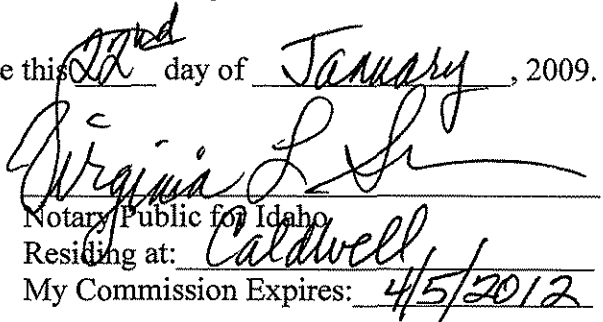 e this 22nd day of January, 2009.
Virginia L.
Notary Public for Idaho
Residing at: Caldwell
My Commission Expires: 4/5/2012